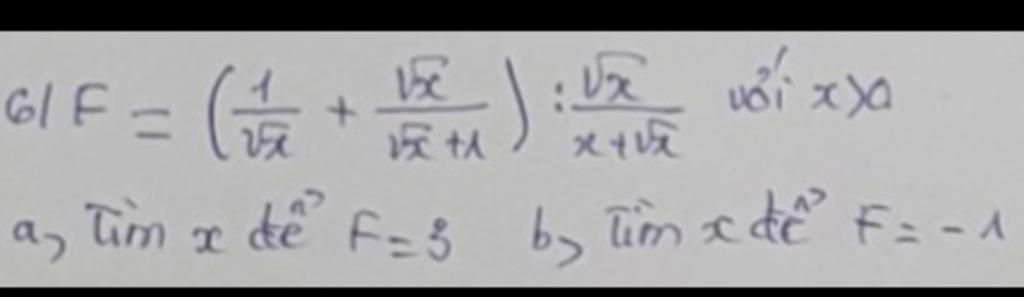 6/ F = (1/√x + √x/(√x+1)) : √x/(x+√x) với x>0
a, Tìm x để F=3 b, Tìm x để F=-1